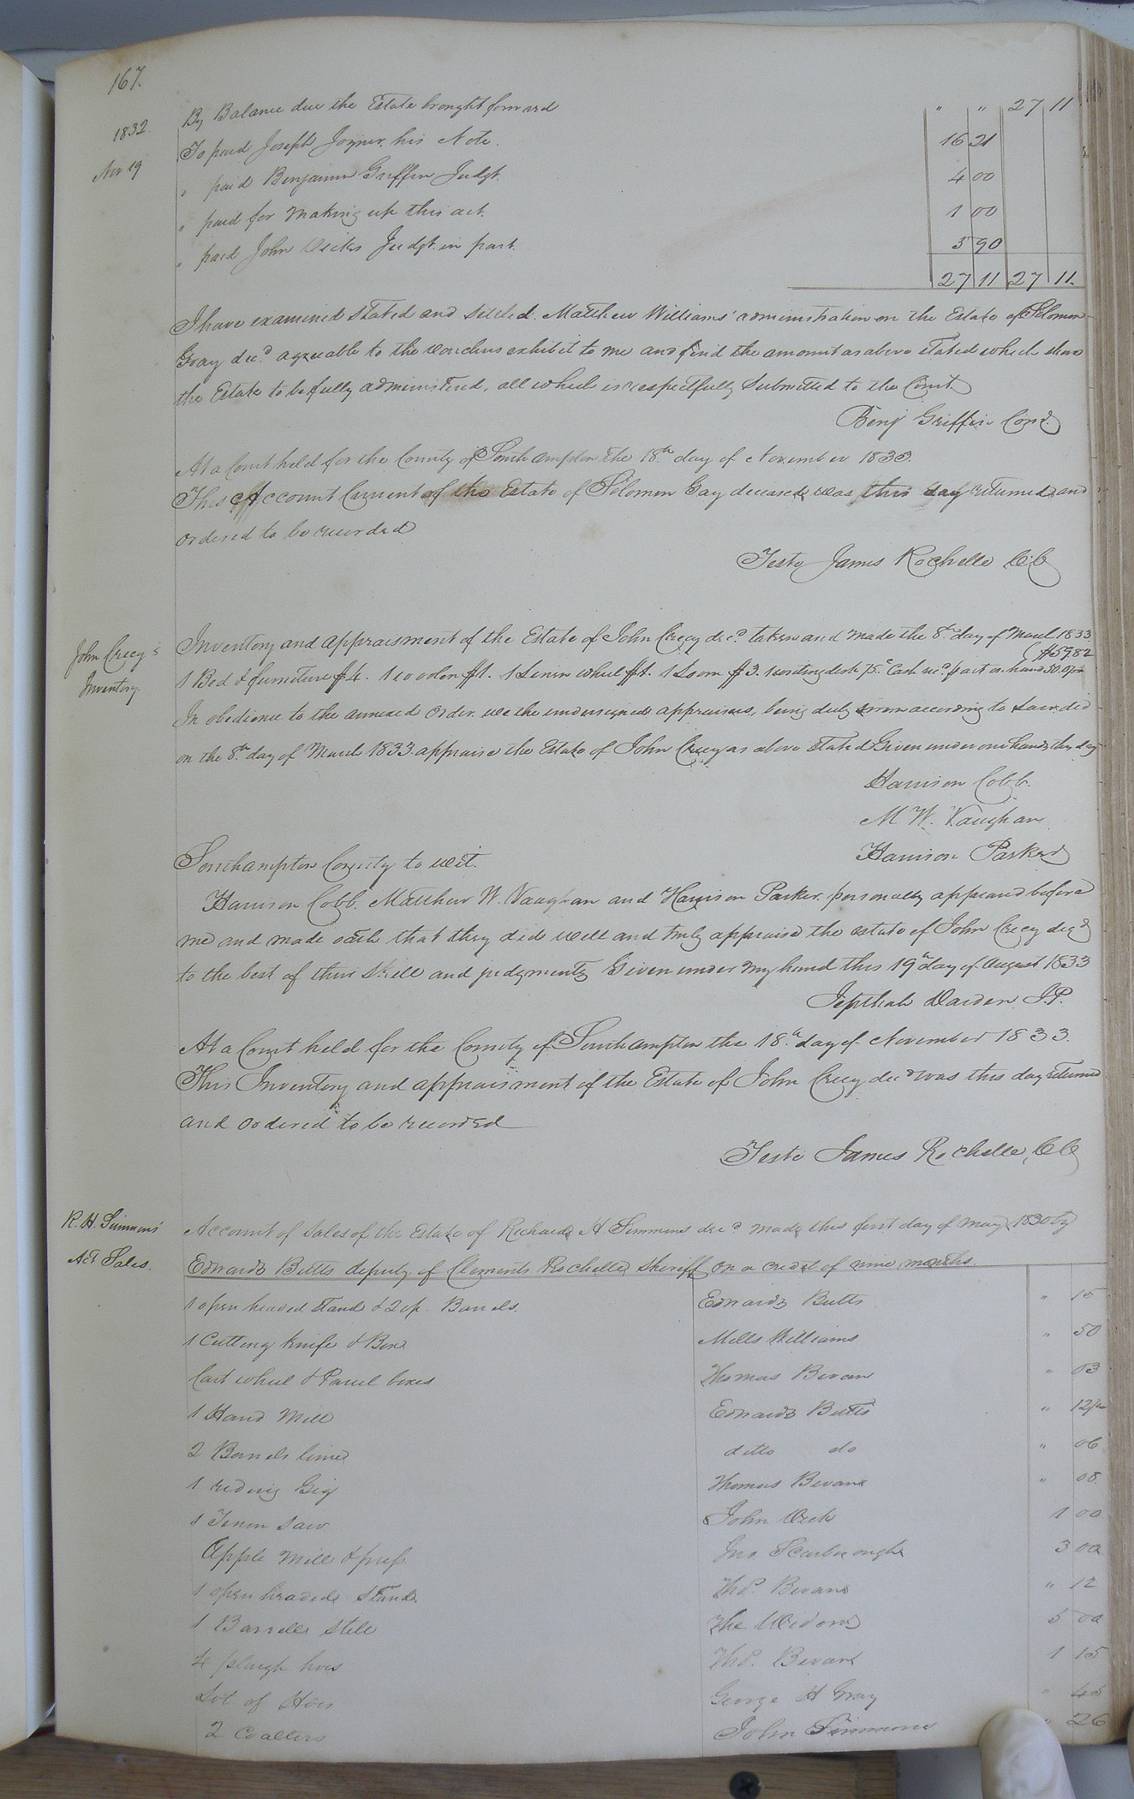 167.
By Balance due the Estate brought forward " " 27 11
1832. To paid Joseph Joyner his Note. 16 21
Nov 19 " paid Benjamin Griffin Judgt. 4 00
" paid for making up this act. 1 00
" paid John Judgt. in part. 5 90
27 11 27 11.
I have examined stated and settled Matthew Williams' administration on the Estate of Solomon
Gray decd. agreeable to the vouchers exhibit to me and find the amount as above stated which shews
the Estate to be fully administered, all which is respectfully submitted to the Court
Benj Griffin Comr.
At a Court held for the County of Southampton the 18th day of November 1833.
This Account Current of the Estate of Solomon Gay deceased was this day returned and
ordered to be recorded
Teste James Rochelle CC
John Crecy's Inventory
Inventory and appraisment of the Estate of John Crecy decd. taken and made the 8th day of March 1833
$59 82
1 Bed & furniture $4. 1 $1. 1 Linen wheel $1. 1 Loom $3. 1 writing desk 75c Cash on hand
In obedience to the annexed order, we the undersigned appraisers, being duly sworn according to Law did
on the 8th day of March 1833 appraise the Estate of John Crecy as above stated Given under our hands this day
Harrison Cobb.
M W. Vaughan
Harrison Parker
Southampton County to wit.
Harrison Cobb. Matthew W. Vaughan and Harrison Parker personally appeared before
me and made oath that they did well and truly appraise the estate of John Crecy decd
to the best of their skill and judgments Given under my hand this 19th day of August 1833
Jepthah Darden J.P.
At a Court held for the County of Southampton the 18th day of November 1833.
This Inventory and appraisment of the Estate of John Crecy decd was this day returned
and ordered to be recorded
Teste James Rochelle, CC
R. H. Simmons' Act Sales.
Account of sales of the Estate of Richard H Simmons decd. made this first day of May 1830 by
Edward Butts deputy of Clements Rochelle Sheriff on a credit of nine months
1 open headed stand & 2 Barrels. Edward Butts " 15
1 Cutting knife & Box Mills Williams " 50
Cart wheel & Parcel boxes Thomas Bevan " 03
1 Hand Mill Edward Butts " 12½
2 Barrels lime ditto do " 06
1 riding Gig Thomas Bevans " 08
1 Tenon saw John 1 00
Apple Mill & press Jno Scarborough 3 00
1 open headed Stand Thos. Bevans " 12
1 Barrell still The Widow 5 00
4 plough hoes Thos. Bevans 1 15
Lot of Hoes George H Gray " 45
2 Coalters John Simmons " 26